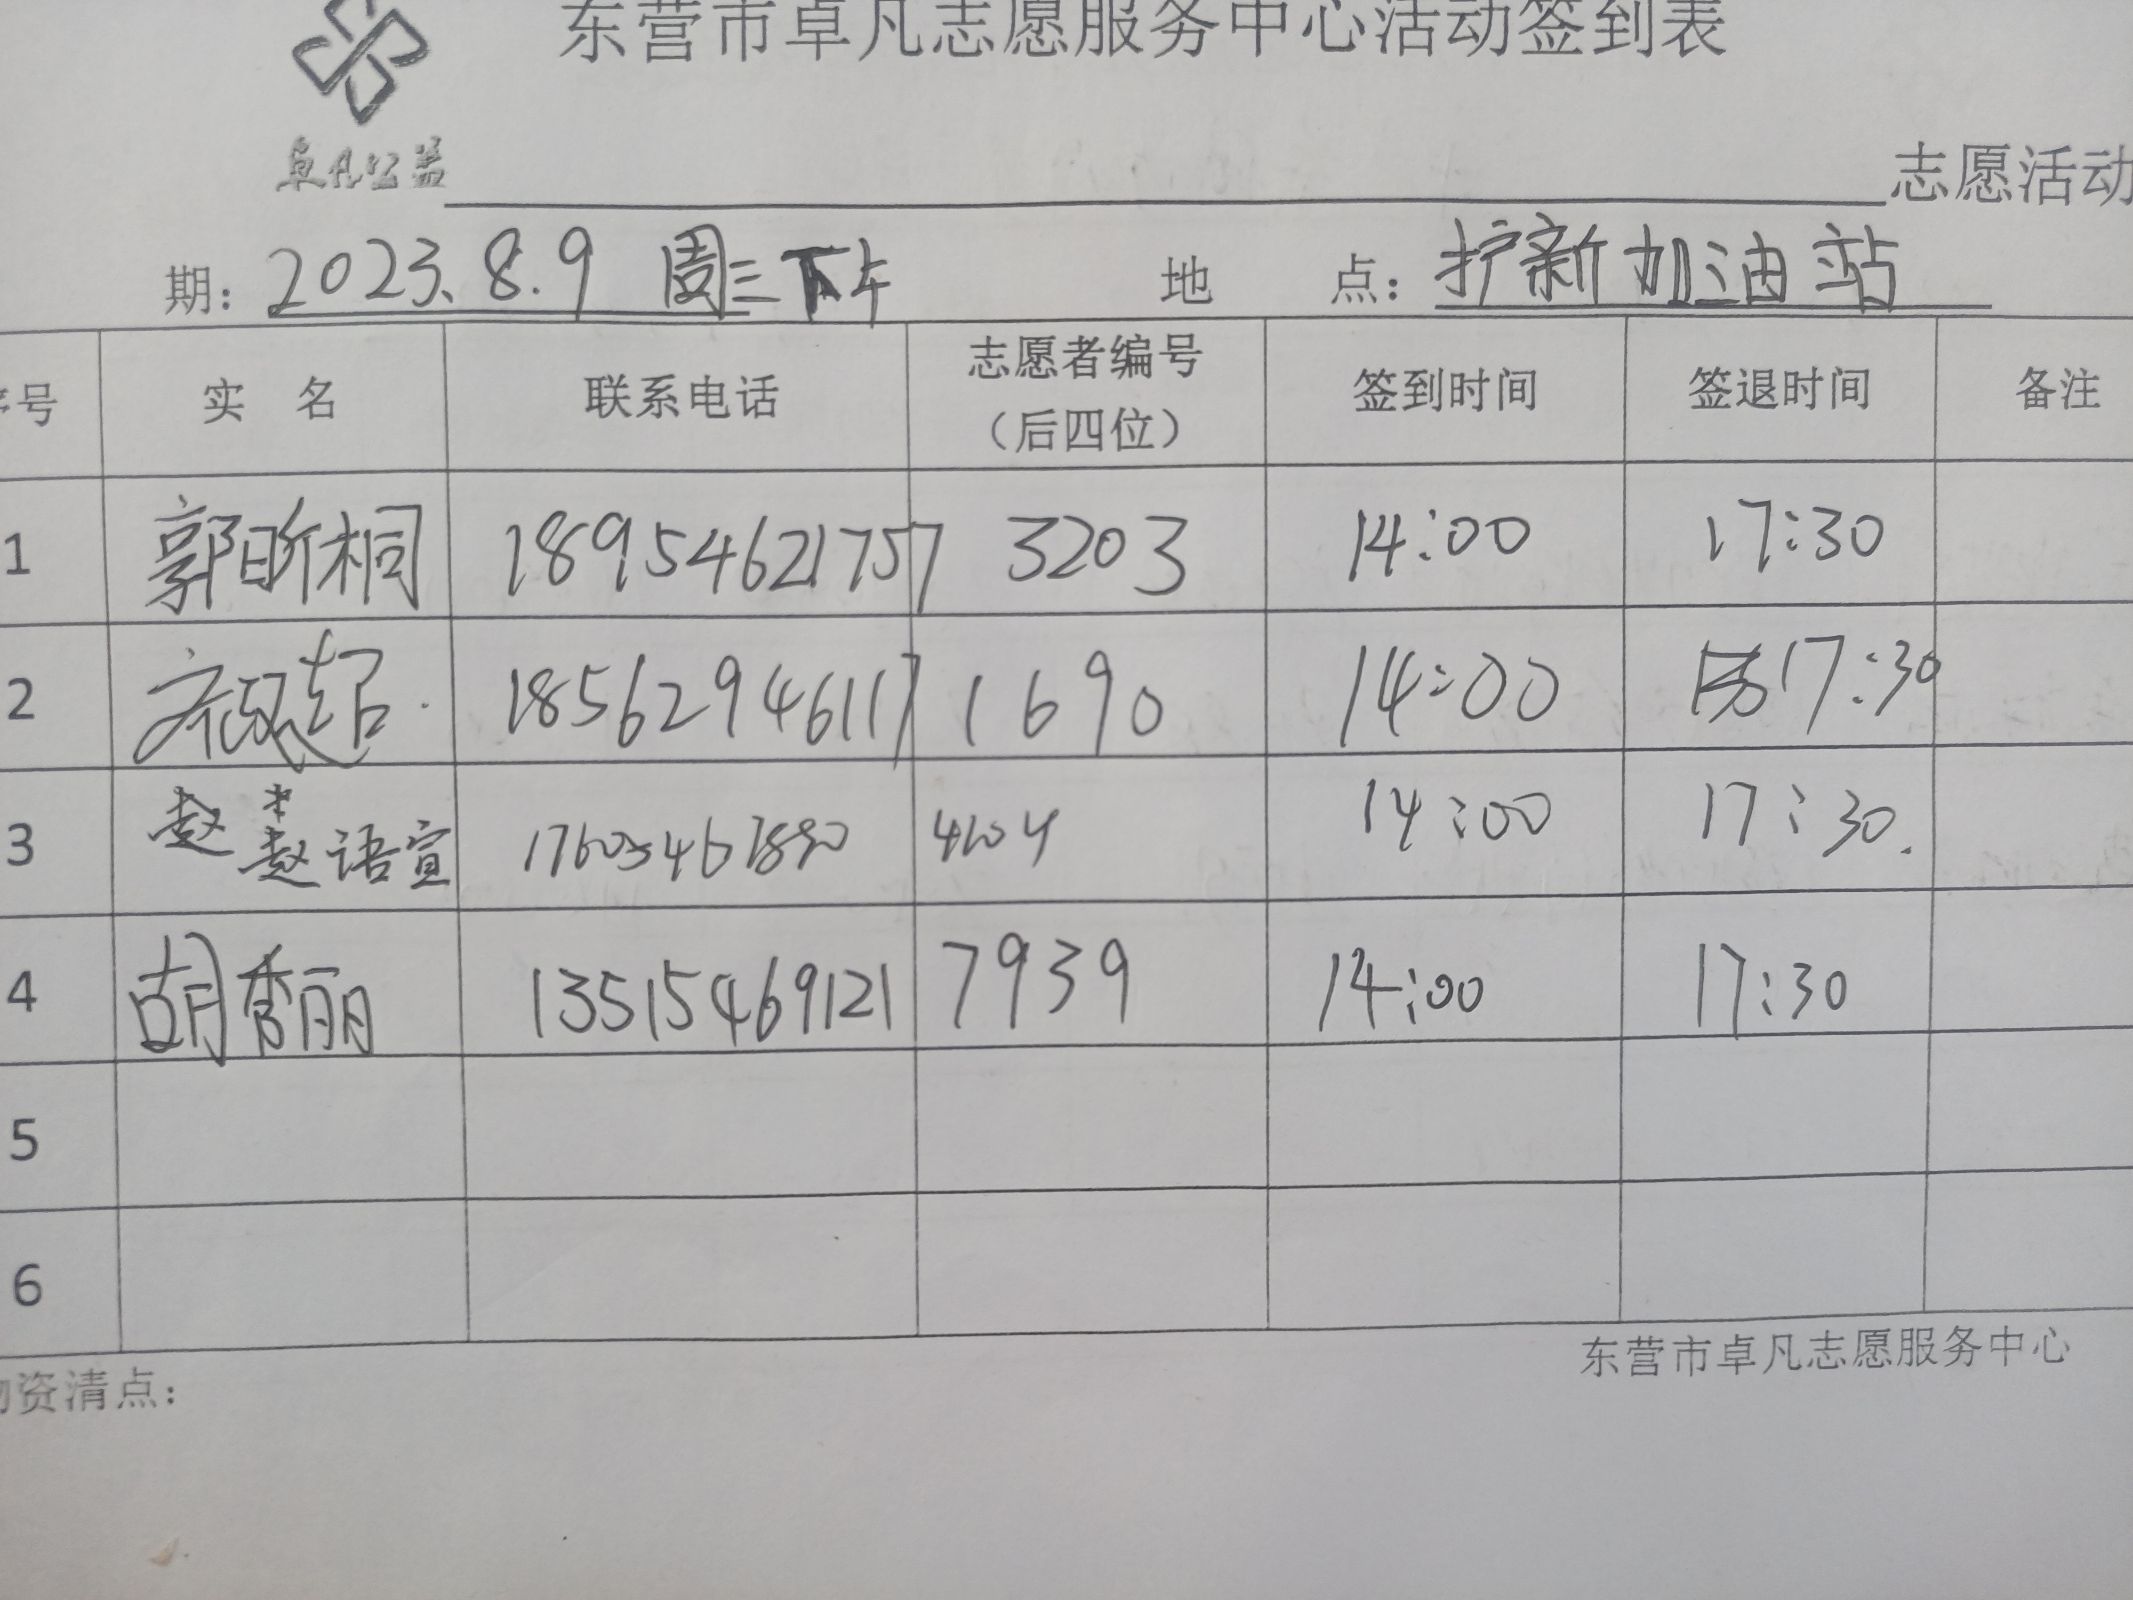 东营市卓凡志愿服务中心活动签到表
卓凡公益
志愿活动
期：2023.8.9 周三下午 地 点：护新加油站
号 实 名 联系电话 志愿者编号（后四位） 签到时间 签退时间 备注
1 郭昕桐 18954621757 3203 14:00 17:30
2 超 18562946117 1690 14:00 17:30
3 赵 语宣 14:00 17:30.
4 胡秀丽 13515469121 7939 14:00 17:30
5
6
资清点：
东营市卓凡志愿服务中心